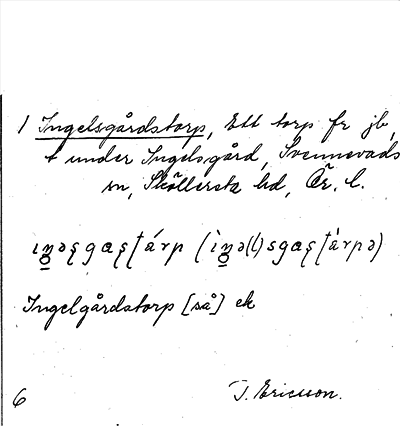 1 Ingelsgårdstorp, Ett torp fr jb,
t under Ingelsgård, Svennevads
sn, Sköllersta hd, Ör. l.
Ingelgårdstorp [så] ek
6 T. Ericsson.